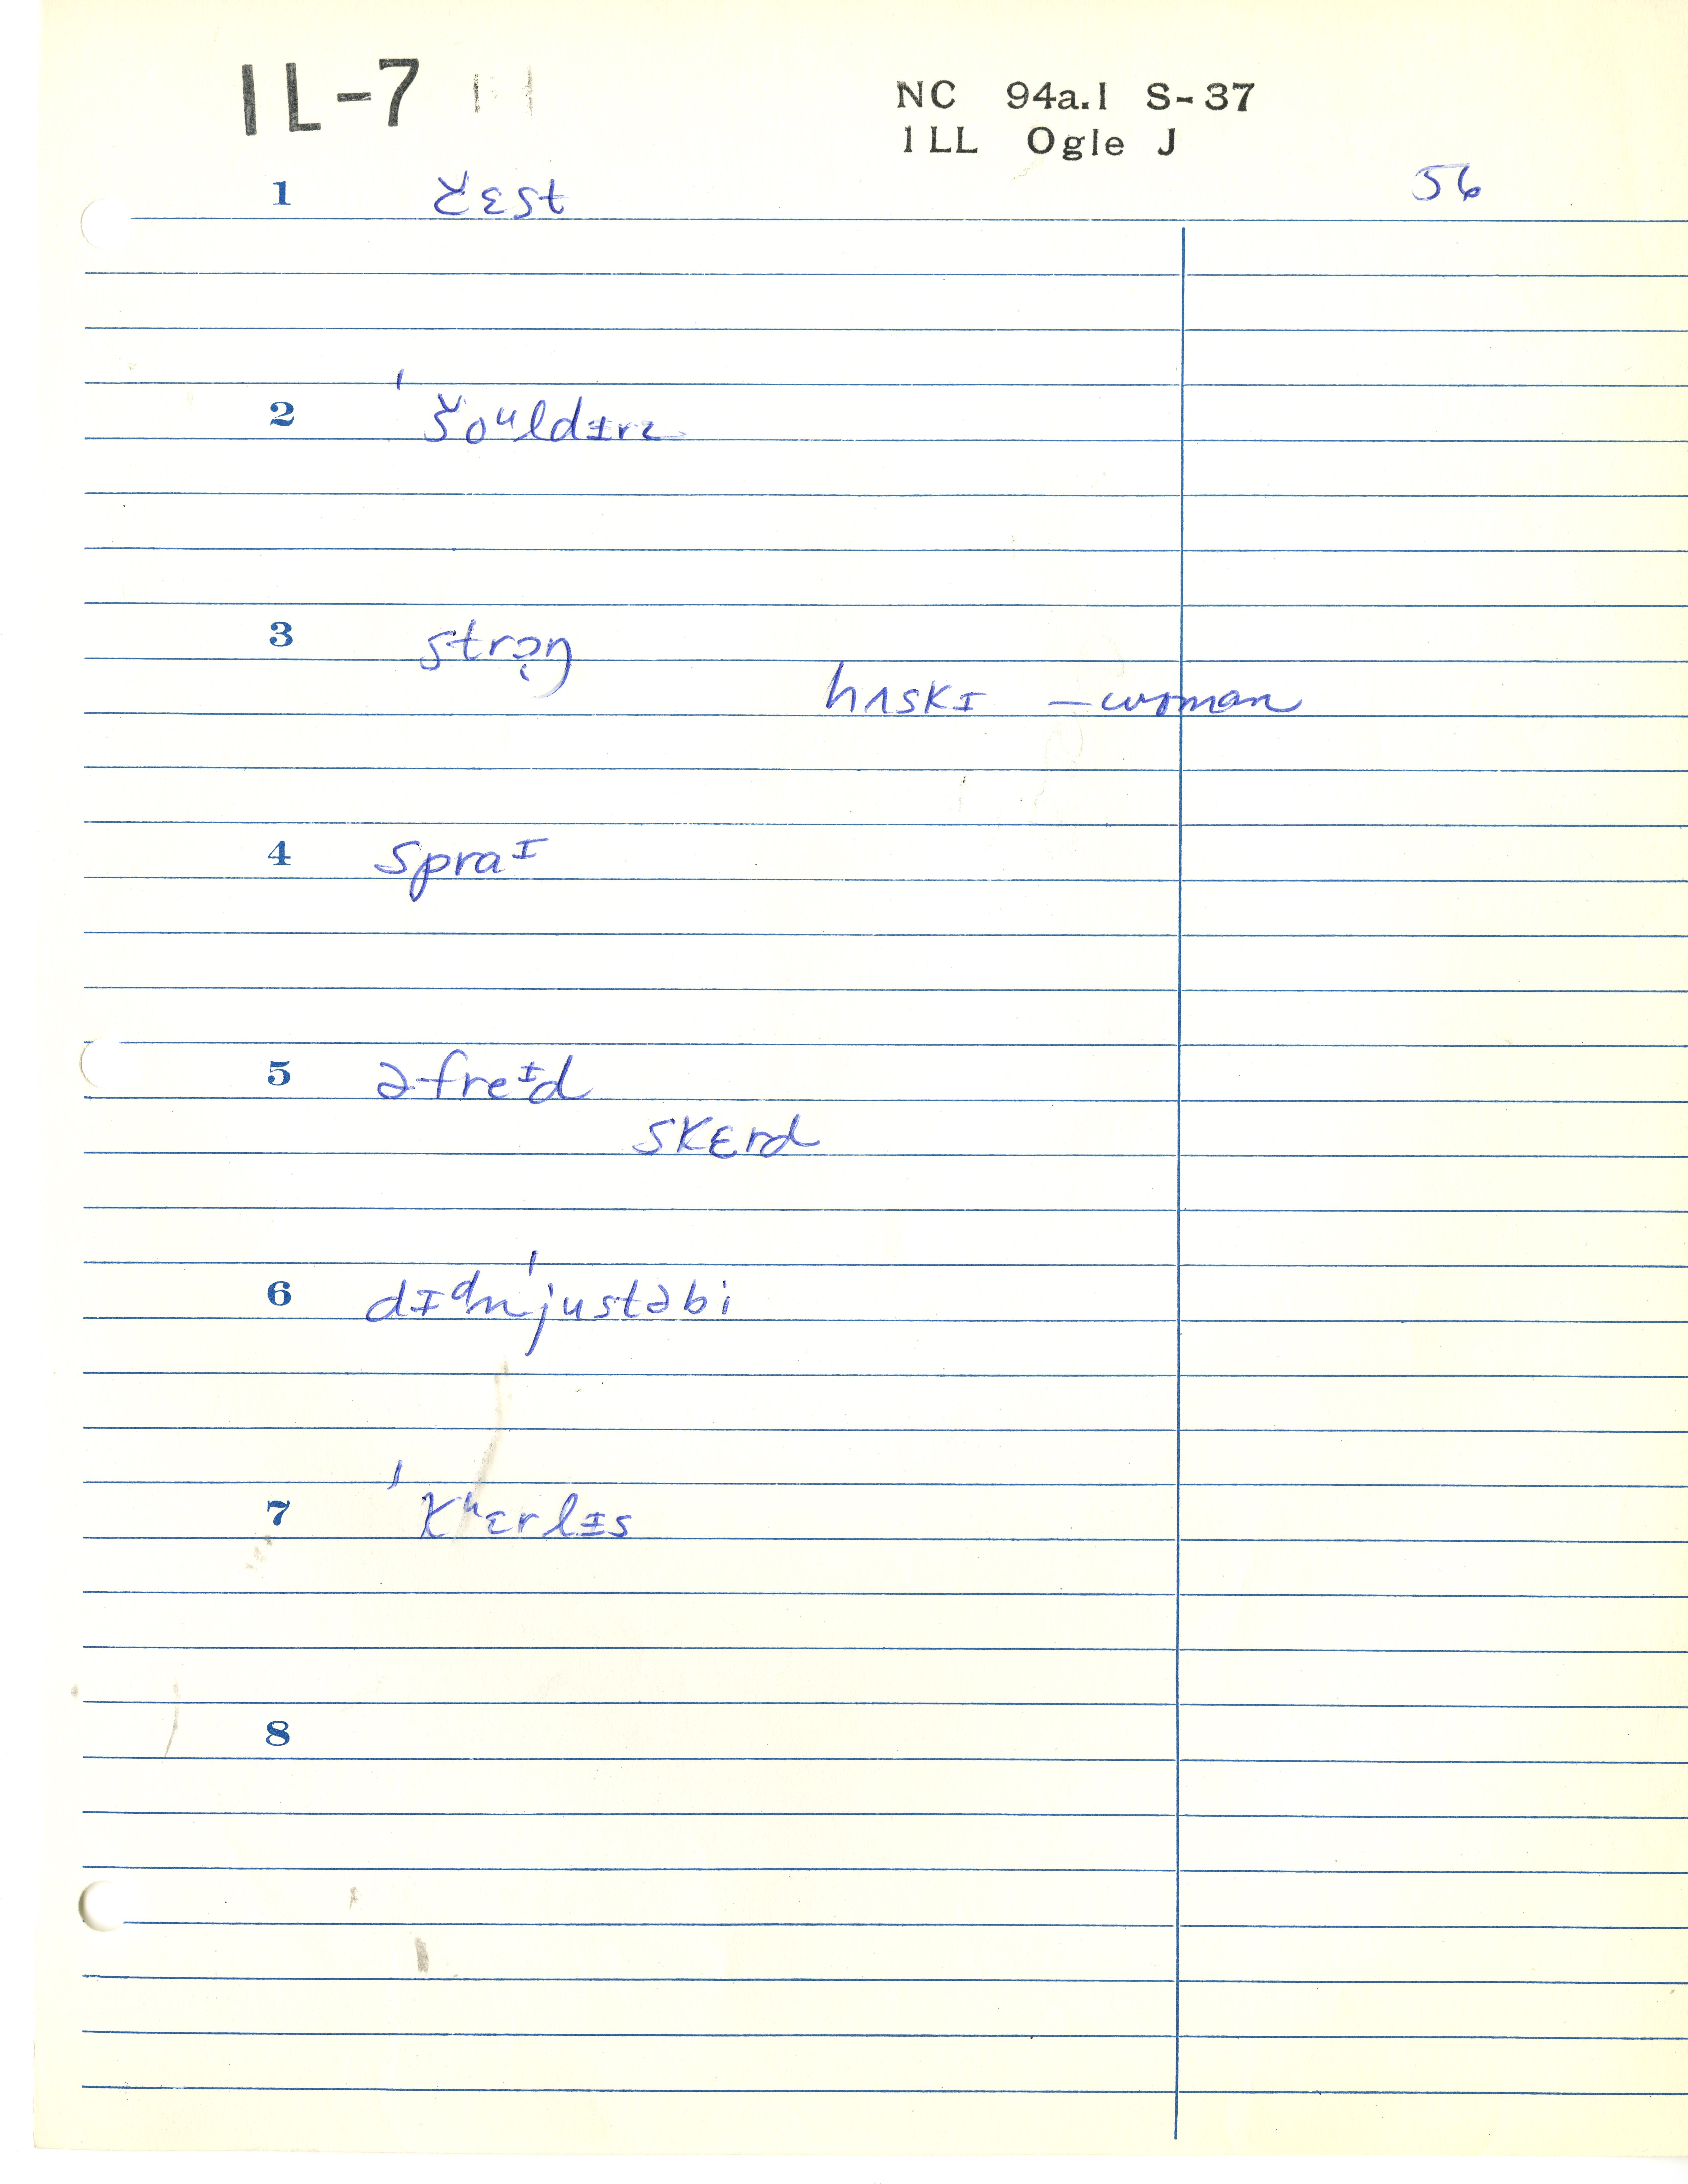 IL-7
NC 94a.1 S-37
ILL Ogle J
56
1 č̣ɛst
2 ˈšoᵘldɨrz
3 strɔ̨ŋ
hʌskɪ – woman
4 spraᴵ
5 əfreᶦd
skɛrd
6 dɪᵈnˈjustəbi
7 ˈkʰɛrlɨs
8